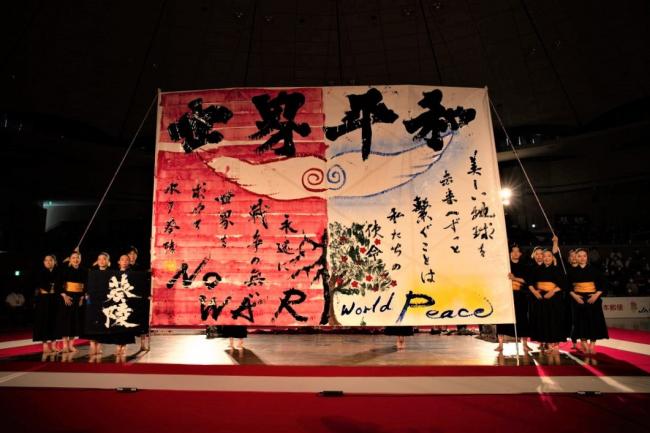 世界平和
美しい地球を
未来へずっと
繋ぐことは
私たちの
使命
永遠に
戦争の無い
世界を
求めて
水戸葵陵
NO WAR
World Peace
葵陵
本郵便